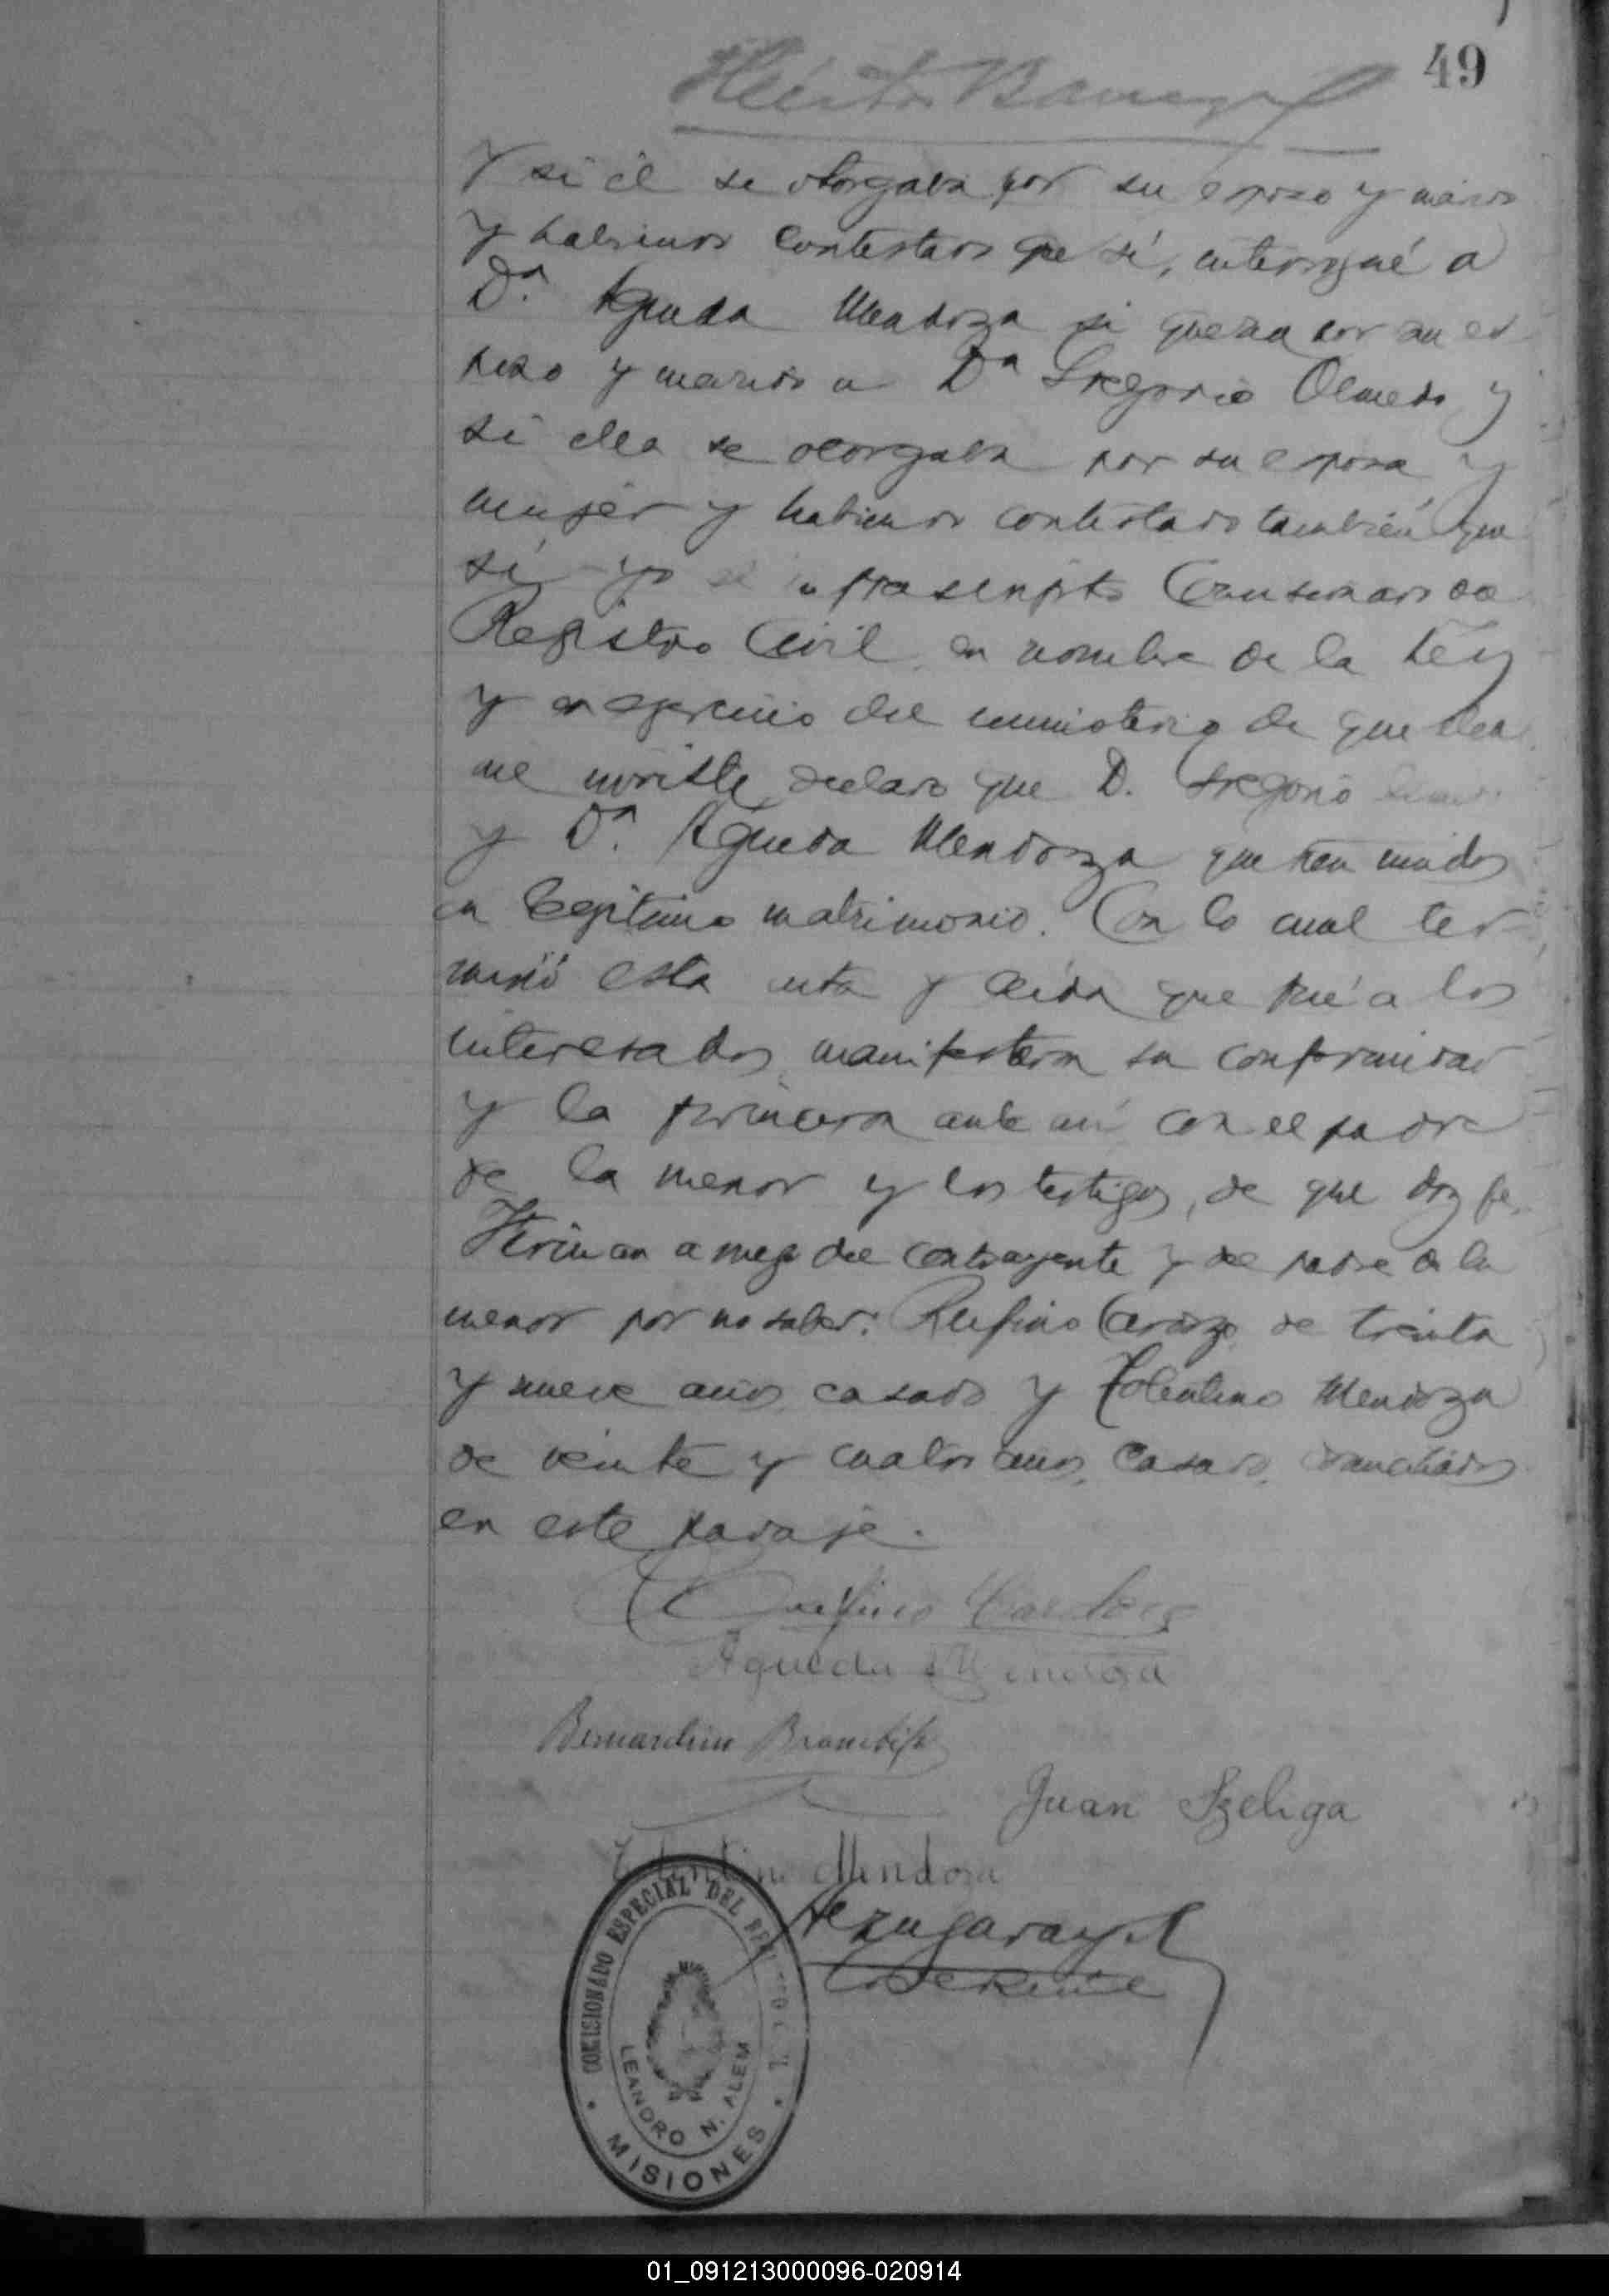 49
Y si él se otorgaba por su esposo y marido
y habiendo contestado que sí, interrogué a
Dª. Agueda Mendoza si quería por su es
poso y marido a Dª Gregorio Olmedo y
si ella se otorgaba por su esposa y
mujer y habiendo contestado también que
sí yo el infrascripto Comisionado del
Registro Civil en nombre de la Ley
y en ejercicio del ministerio de que ella
me inviste, declaro que D. Gregorio
y Dª. Agueda Mendoza quedan unidos
en legítimo matrimonio. Con lo cual ter
minó esta acta y leída que fué a los
interesados, manifestaron su conformidad
y la firmaron ante mí con el padre
de la menor y los testigos, de que doy fe.
Firman a ruego del contrayente y del padre de la
menor por no saber: Rufino Cardozo de treinta
y nueve años casado y Tolentino Mendoza
de veinte y cuatro años, casado, domiciliados
en este paraje.
Rufino Cardozo
Agueda Mendoza
Bernardino
Juan Szeliga
Tolentino Mendoza
COMISIONADO ESPECIAL DEL REGISTRO CIVIL
LEANDRO N. ALEM
MISIONES
01_091213000096-020914